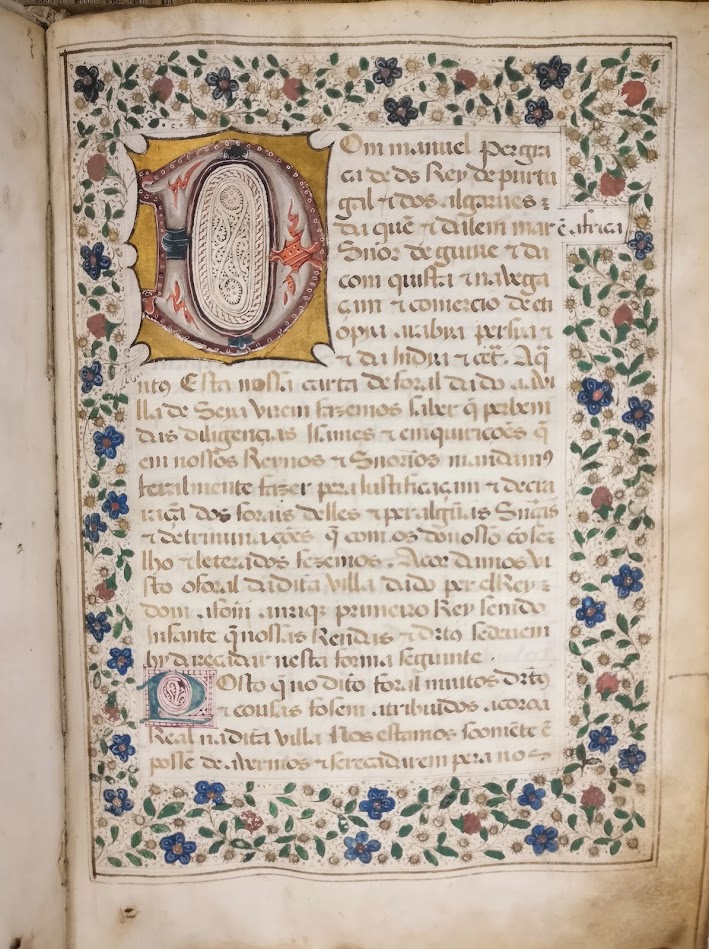 Dom manuel per gra
ça de ds Rey de purtu
gal ⁊ dos algarues :
da quē ⁊ dalem mar ē africa
Snõr de guine ⁊ da
com quista ⁊ navega
çam ⁊ comercio de eti
opia arabia persia ⁊
⁊ da hidia ⁊ cet. Aq̃
ntꝰ Esta nossa carta de foral dado aa Vi
lla de Sena virem fazemos saber q̃ per bem
das diligençias Isames ⁊ emquiricoẽs q̃
em nossos Reynos ⁊ Snorios mandamꝰ
geralmente fazer pera Justificaçam ⁊ decra
raçã dos forais delles ⁊ per algũas Snças
⁊ detriminações q̃ com os do nosso cõse
lho ⁊ leterados fezemos. Acordamos vi
sto o foral da dita villa dado per el Rey :
dom afom anriq̃ primeiro Rey sendo
Infante q̃ nossas Rendas ⁊ drtõ se devem
hy darecadar nesta forma seguinte.
Posto q̃ no dito foral muitos drtõs
⁊ cousas fosem atribuidos a coroa
Real na dita villa Nos estamos soomẽte ẽ
posse de avermos ⁊ se recadarem pera nos